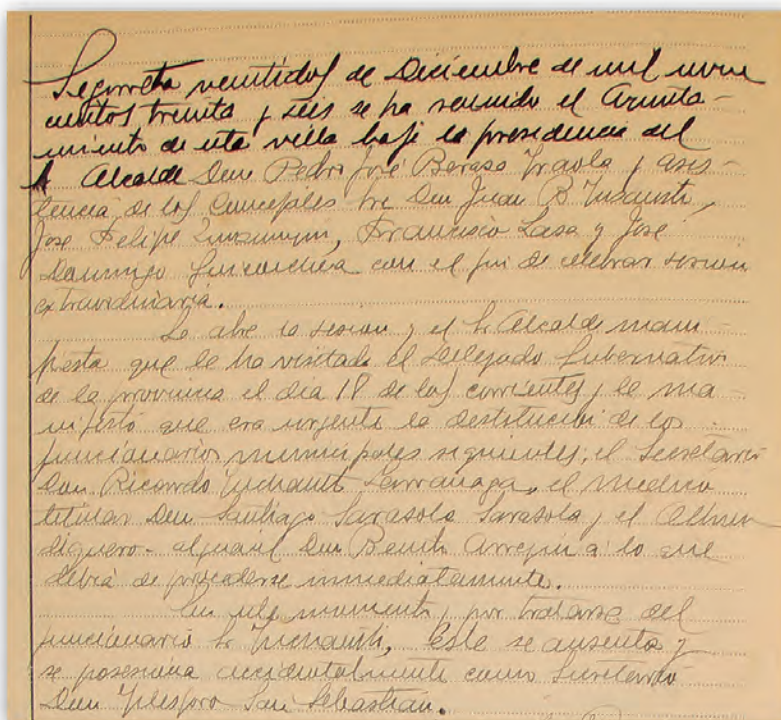 Segorreta veintidos de Diciembre de mil nove
cientos treinta y seis se ha reunido el Ayunta-
miento de esta villa bajo la presidencia del
Sr. Alcalde Don Pedro José Beraza y asis-
tencia de los Concejales Sre Don Juan B.
José Felipe, Francisco Lasa y José
Domingo con el fin de celebrar sesion
extraordinaria.
Se abre la sesion y el Sr Alcalde mani-
fiesta que le ha visitado el Delegado Gubernativo
de la provincia el dia 18 de los corrientes y le ma-
nifestó que era urgente la destitución de los
funcionarios municipales siguientes; el Secretario
Don Ricardo Larrañaga, el Medico
titular Don Santiago Sarasola Sarasola y el Alhon-
diguero-alguacil Don Benito Arregui a lo que
debia de procederse inmediatamente.
En este momento, por tratarse del
funcionario Sr, este se ausenta y
se posesiona accidentalmente como Secretario
Don Telesforo San Sebastian.